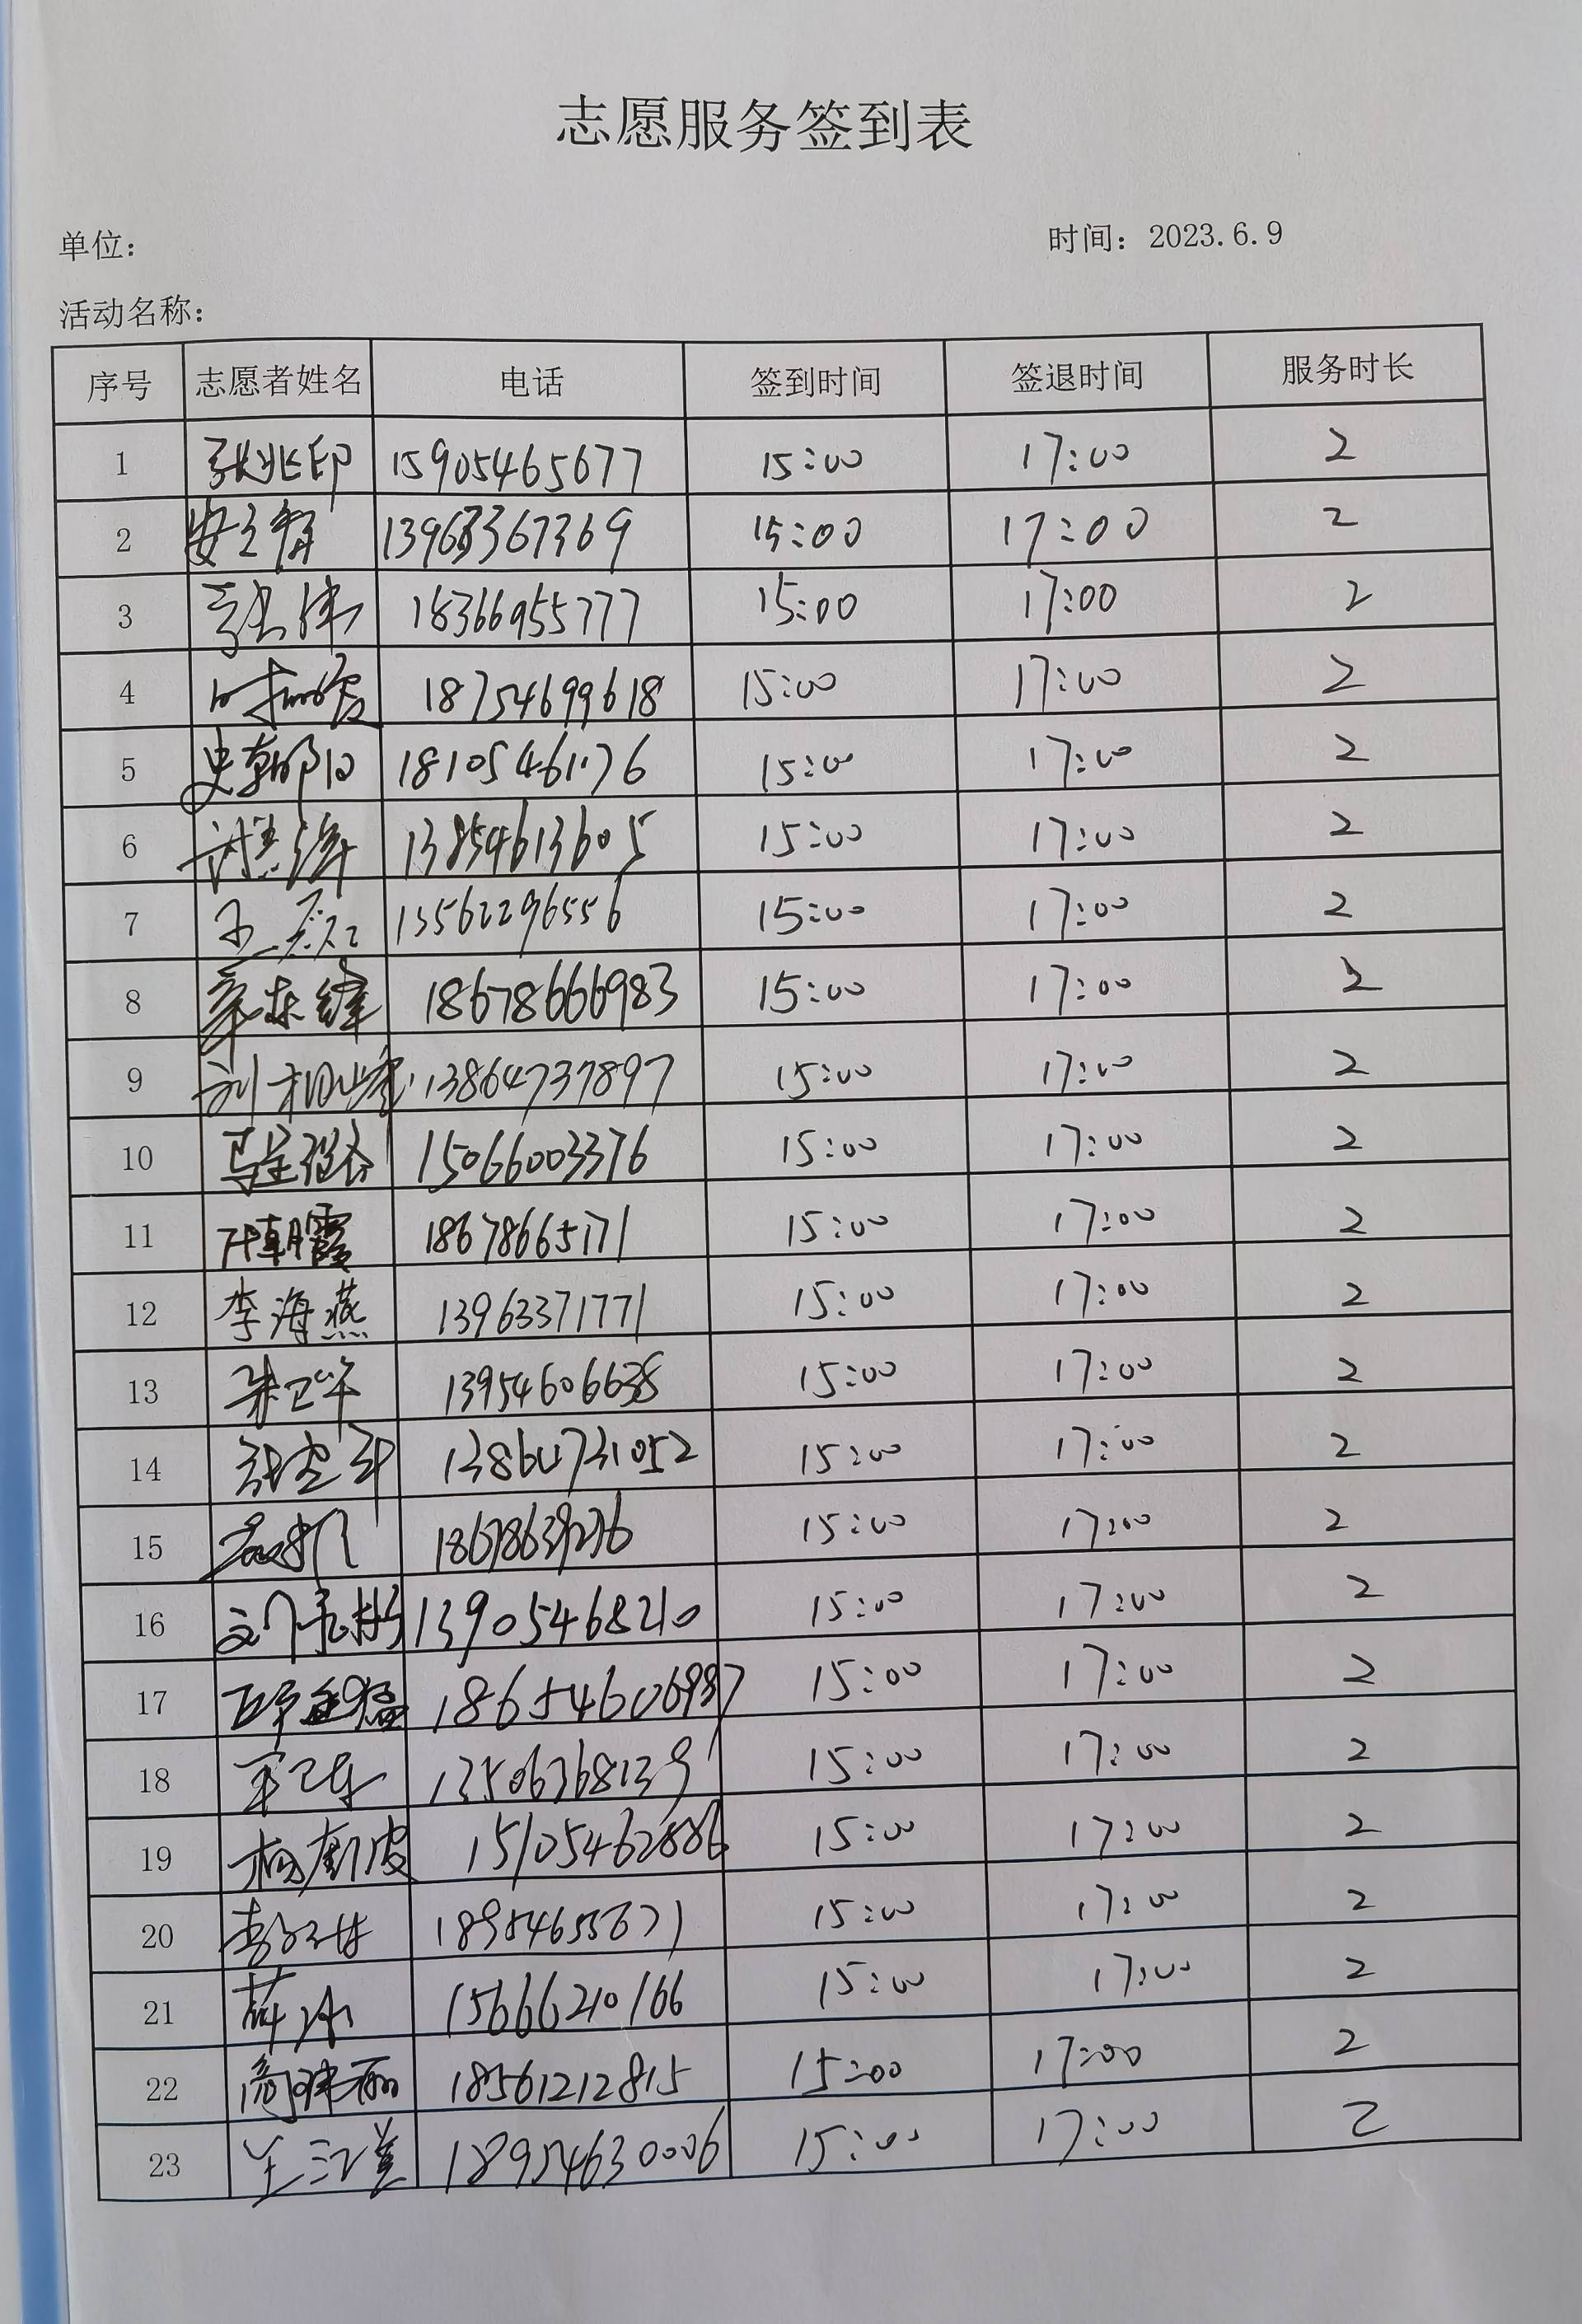 志愿服务签到表
单位：
时间：2023.6.9
活动名称：
序号 志愿者姓名 电话 签到时间 签退时间 服务时长
1 张兆印 15905465677 15:00 17:00 2
2 15:00 17:00 2
3 18366955777 15:00 17:00 2
4 18754699618 15:00 17:00 2
5 15:00 17:00 2
6 13854613605 15:00 17:00 2
7 13562296556 15:00 17:00 2
8 18678666983 15:00 17:00 2
9 13864737897 15:00 17:00 2
10 15066003376 15:00 17:00 2
11 朝霞 18678665171 15:00 17:00 2
12 李海燕 13963371771 15:00 17:00 2
13 朱卫华 13954606638 15:00 17:00 2
14 13864731052 15:00 17:00 2
15 15:00 17:00 2
16 13905468210 15:00 17:00 2
17 15:00 17:00 2
18 13506368139 15:00 17:00 2
19 15105462886 15:00 17:00 2
20 18954655671 15:00 17:00 2
21 薛冰 15666210166 15:00 17:00 2
22 18561212815 15:00 17:00 2
23 18954630006 15:00 17:00 2